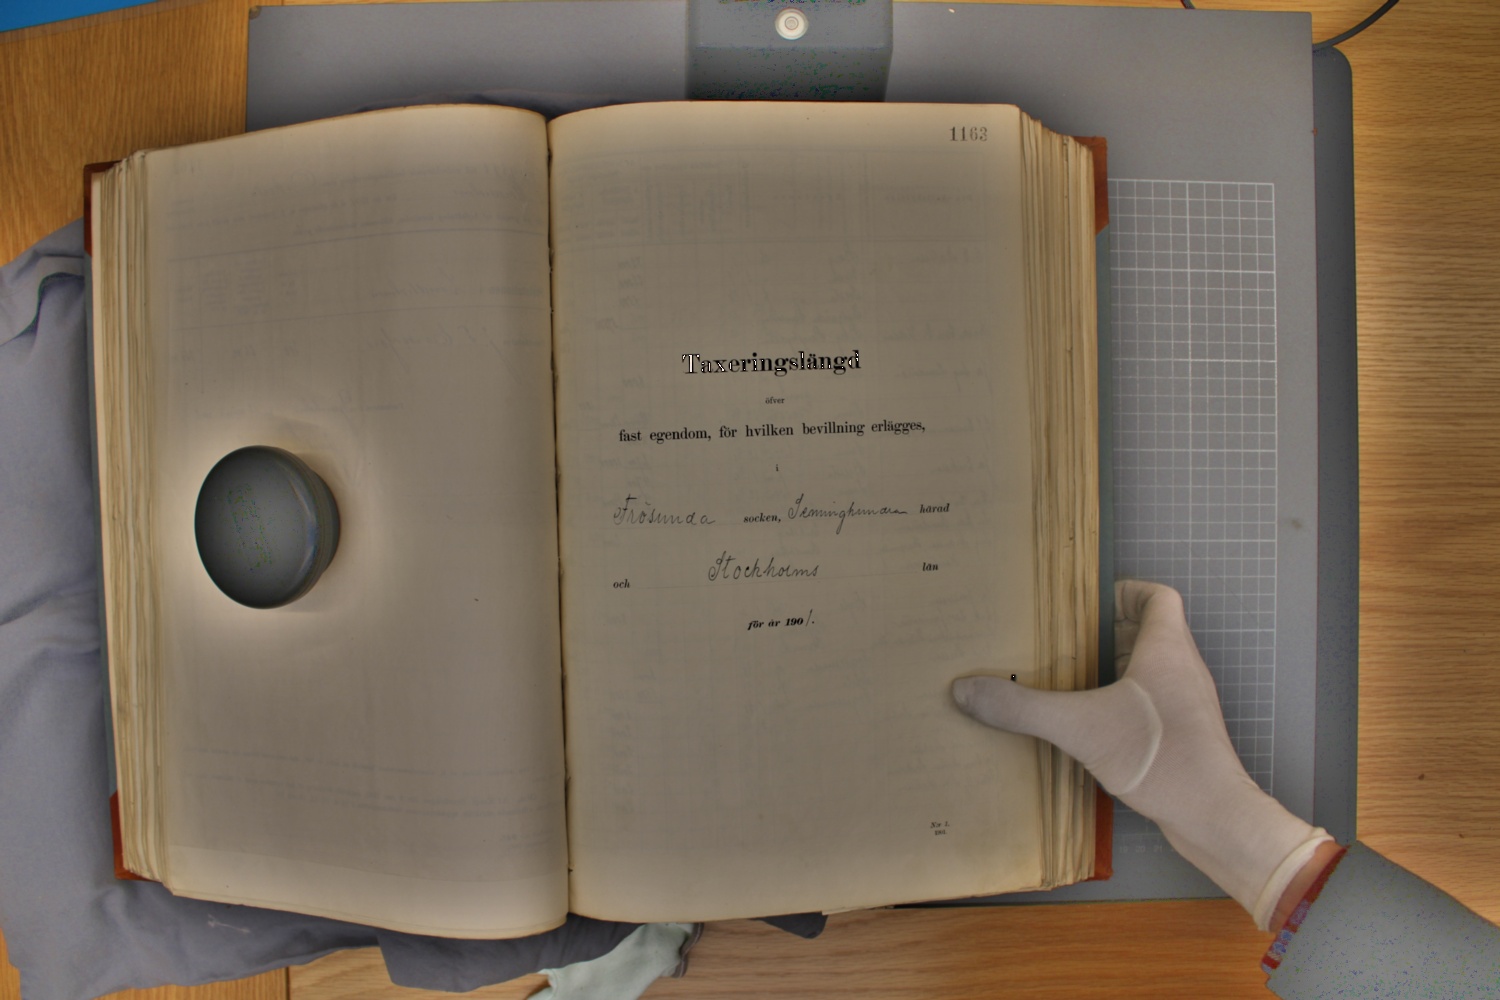 1163
Taxeringslängd
öfver
fast egendom, för hvilken bevillning erlägges,
i
Frösunda socken, Seminghundra härad
och Stockholms län
för år 1901.